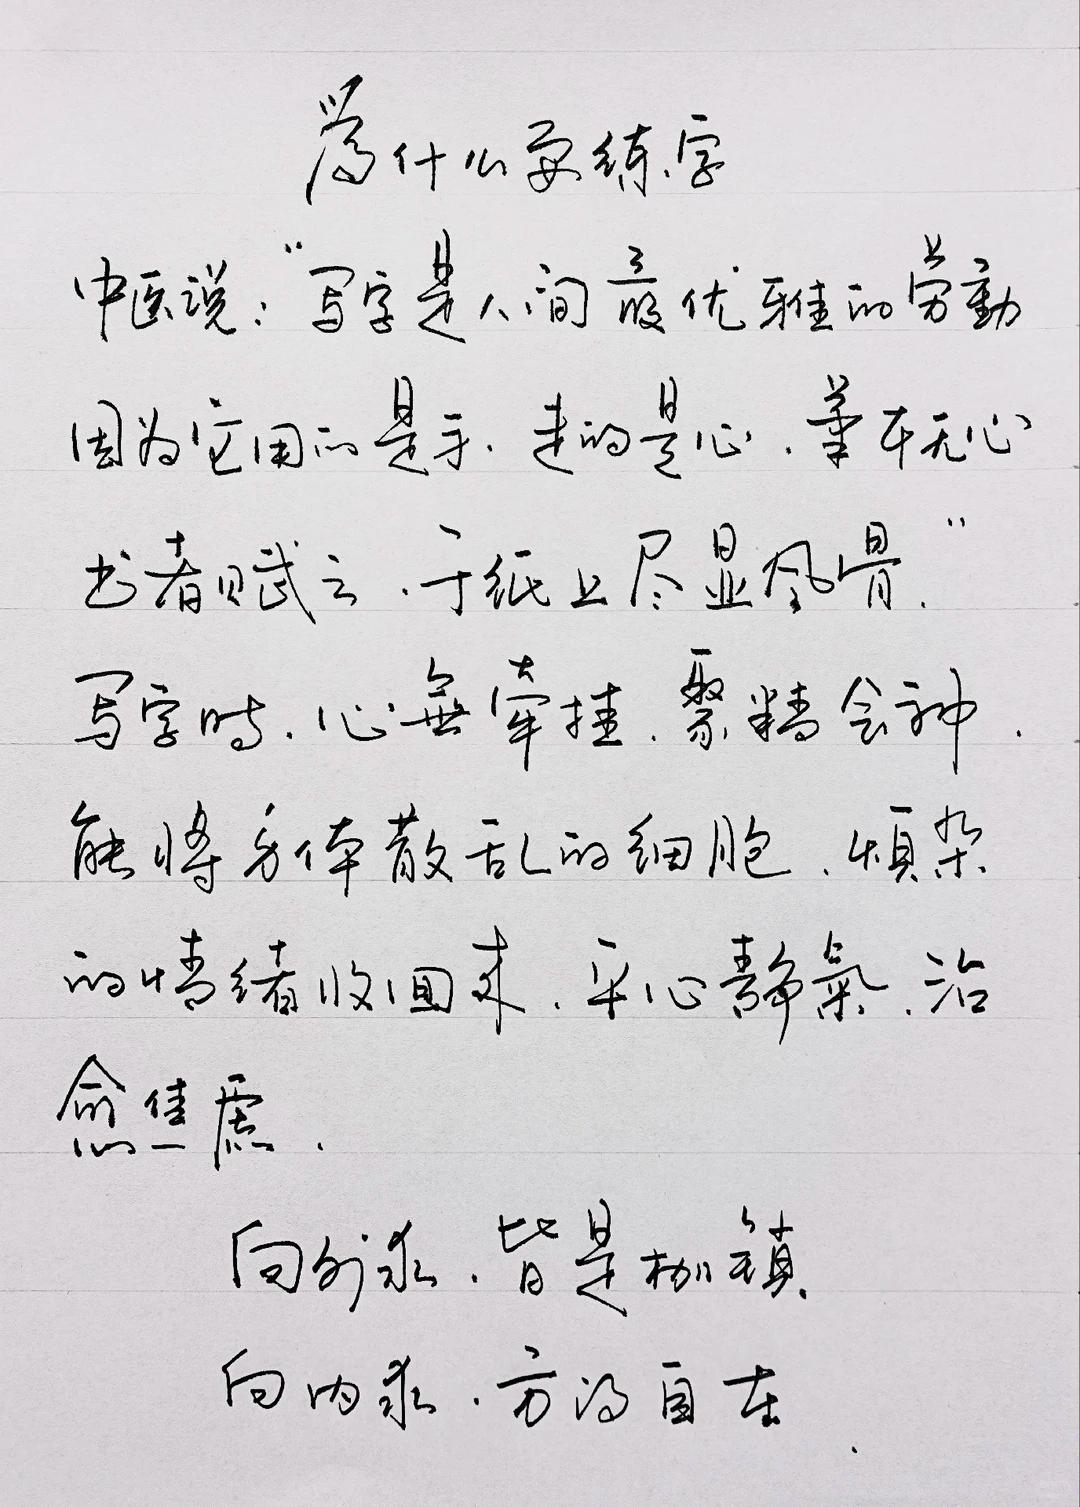 為什么要练字
中医说："写字是人间最优雅的劳動
因为它用的是手.走的是心.筆本无心
书者赋之.于纸上尽显风骨."
写字时.心無牵挂.聚精会神.
能将身体散乱的细胞.烦杂
的情绪收回来.平心静氣.治
愈焦虑.
向外求.皆是枷鎖.
向内求.方得自在.